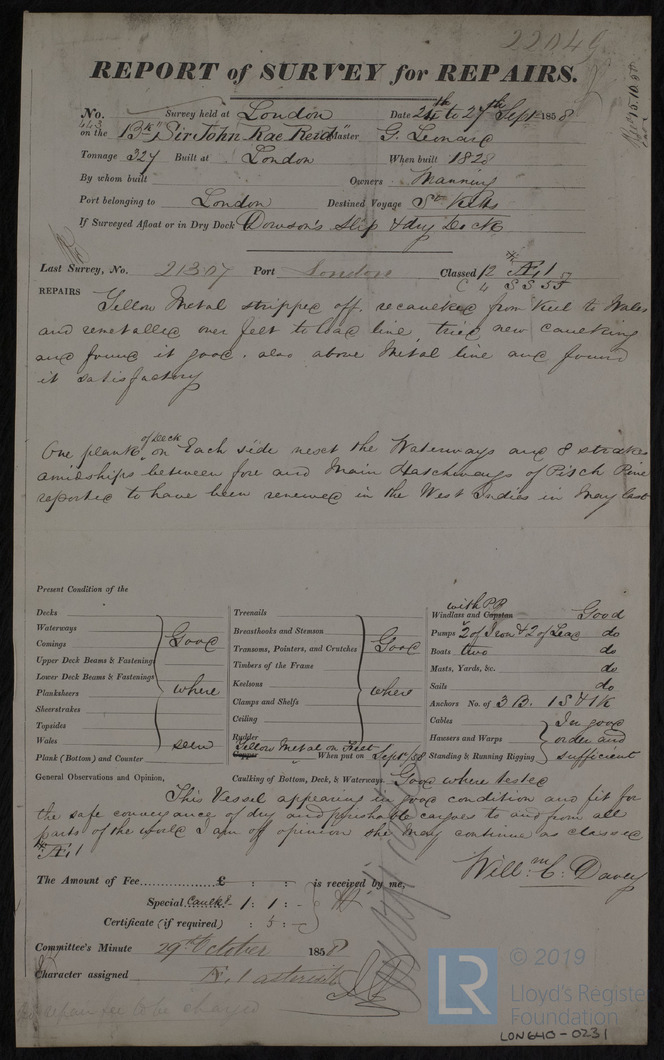 22049
REPORT of SURVEY for REPAIRS.
No. Survey held at London Date 24th to 27th Sept. 1858
on the Bk "Sir John Rae Reid" Master G. Leonard
Tonnage 327 Built at London When built 1828
By whom built Owners Manning
Port belonging to London Destined Voyage St Kitts
If Surveyed Afloat or in Dry Dock Dowson's Slip & dry Dock
Last Survey, No. 21307 Port London Classed 12 Æ1
REPAIRS Yellow Metal stripped off, recaulked from Keel to Wales
and remetalled over felt to load line, tried new caulking
and found it good. also above Metal line and found
it satisfactory
One plank of Deck on Each side next the Waterways and 8 strakes
amidships between fore and Main Hatchways of Pitch Pine
reported to have been renewed in the West Indies in May last
Present Condition of the
Decks
Waterways
Comings
Upper Deck Beams & Fastenings
Lower Deck Beams & Fastenings
Planksheers
Sheerstrakes
Topsides
Wales
Plank (Bottom) and Counter
Good
where
seen
Treenails
Breasthooks and Stemson
Transoms, Pointers, and Crutches
Timbers of the Frame
Keelsons
Clamps and Shelfs
Ceiling
Rudder
Good
where
Yellow Metal on Felt
Copper When put on Sept/58
with PP
Windlass and Capstan Good
Pumps 2 of Iron & 2 of Lead do
Boats two do
Masts, Yards, &c. do
Sails do
Anchors No. of 3 B. 1 S & 1 K
Cables
Hawsers and Warps
Standing & Running Rigging
In good
order and
sufficient
General Observations and Opinion, Caulking of Bottom, Deck, & Waterways Good where tested
This Vessel appearing in good condition and fit for
the safe conveyance of dry and perishable cargoes to and from all
parts of the world I am of opinion she may continue as classed
Æ1
Willm. C. Davey
The Amount of Fee £ : : is received by me,
Special Caulkg 1 : 1 : -
Certificate (if required) : 5 : -
Committee's Minute 29th October 1858
Character assigned Æ.1 asterisk
repair fee to be charged
LR
© 2019
Lloyd's Register
Foundation
LON640-0231